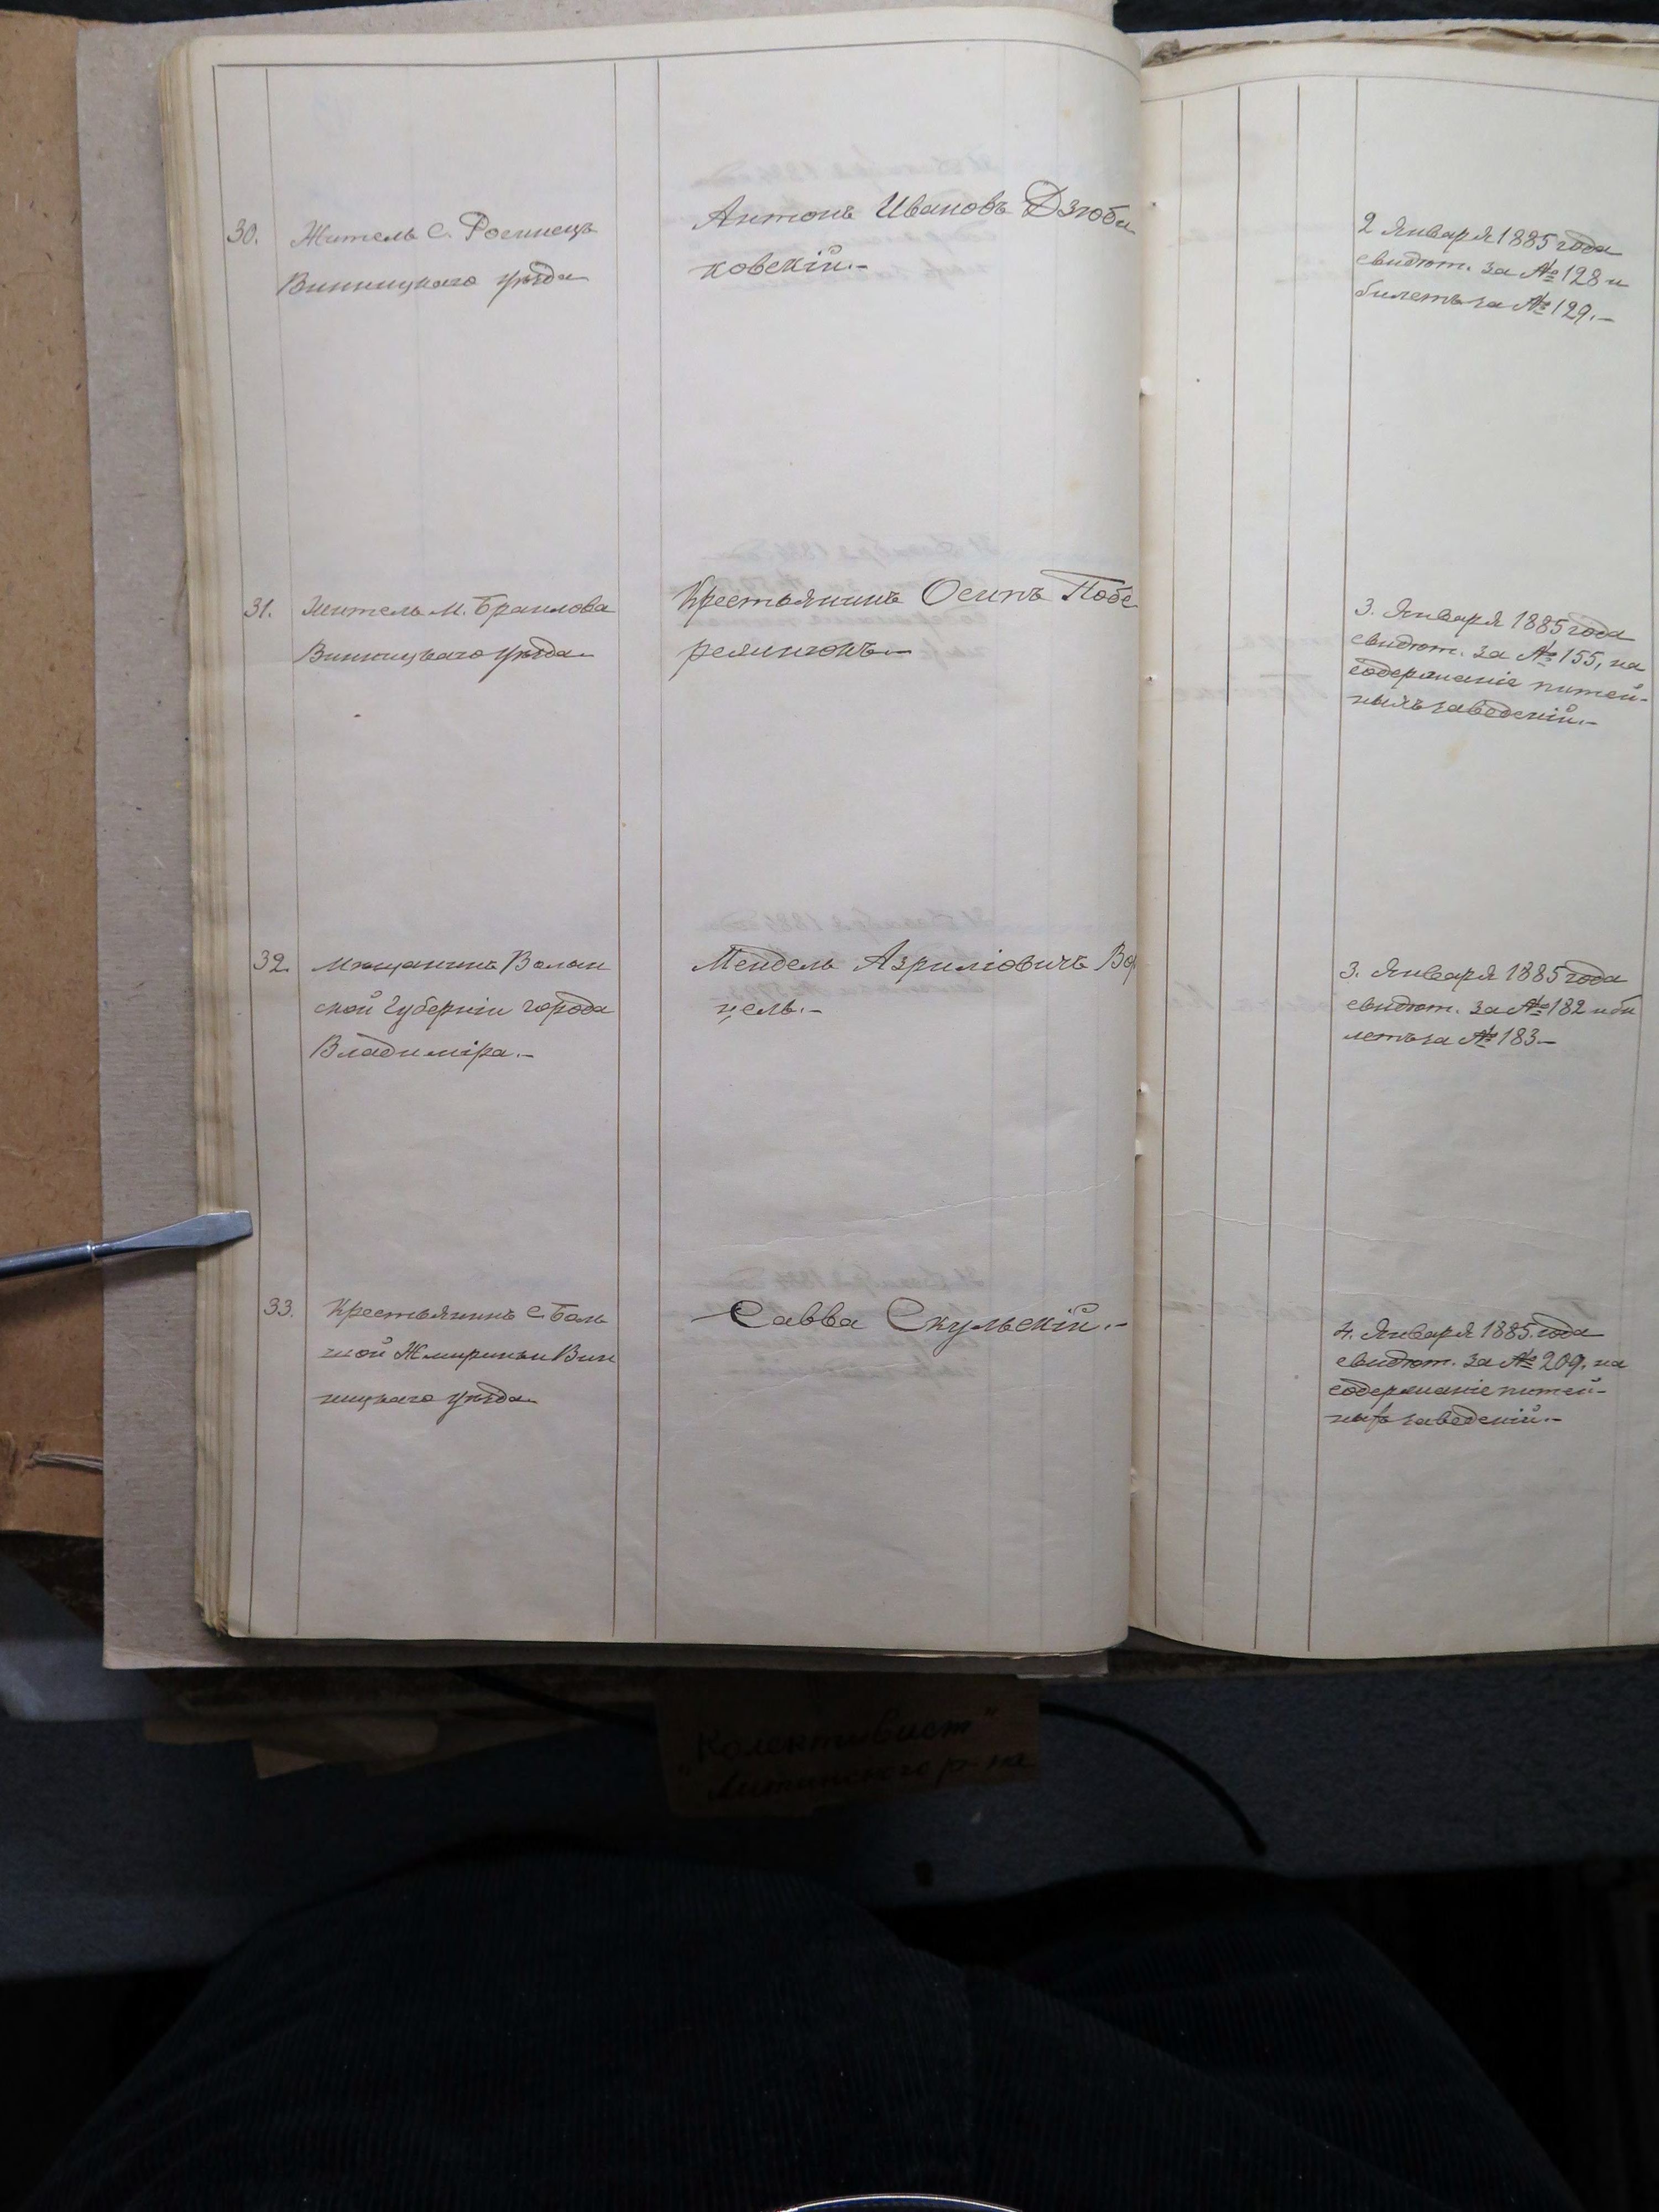 30. Житель С. Росинецъ
Винницкаго уѣзда
Антонъ Ивановъ Дзюби
ковскій.-
2 Января 1885 года
свидѣт. за № 128 и
билетъ за № 129.-
31. Житель М. Браилова
Винницкаго уѣзда
Крестьянинъ Осипъ Побе
режнюкъ
3. Января 1885 года
свидѣт. за № 155, на
содержаніе питей-
ныхъ заведеній.-
32. Мѣщанинъ Волын
ской Губерніи города
Владиміра.-
Мендель Азриліовичъ
цель.-
3. Января 1885 года
свидѣт. за № 182 и би
летъ за № 183-
33. Крестьянинъ С. Боль
шой Жмиринки Вин
ницкаго уѣзда
Савва Скульскій.-
4. Января 1885. года
свидѣт. за № 209. на
содержаніе питей-
ныхъ заведеній.-
"Колективист"
Литинского р-на